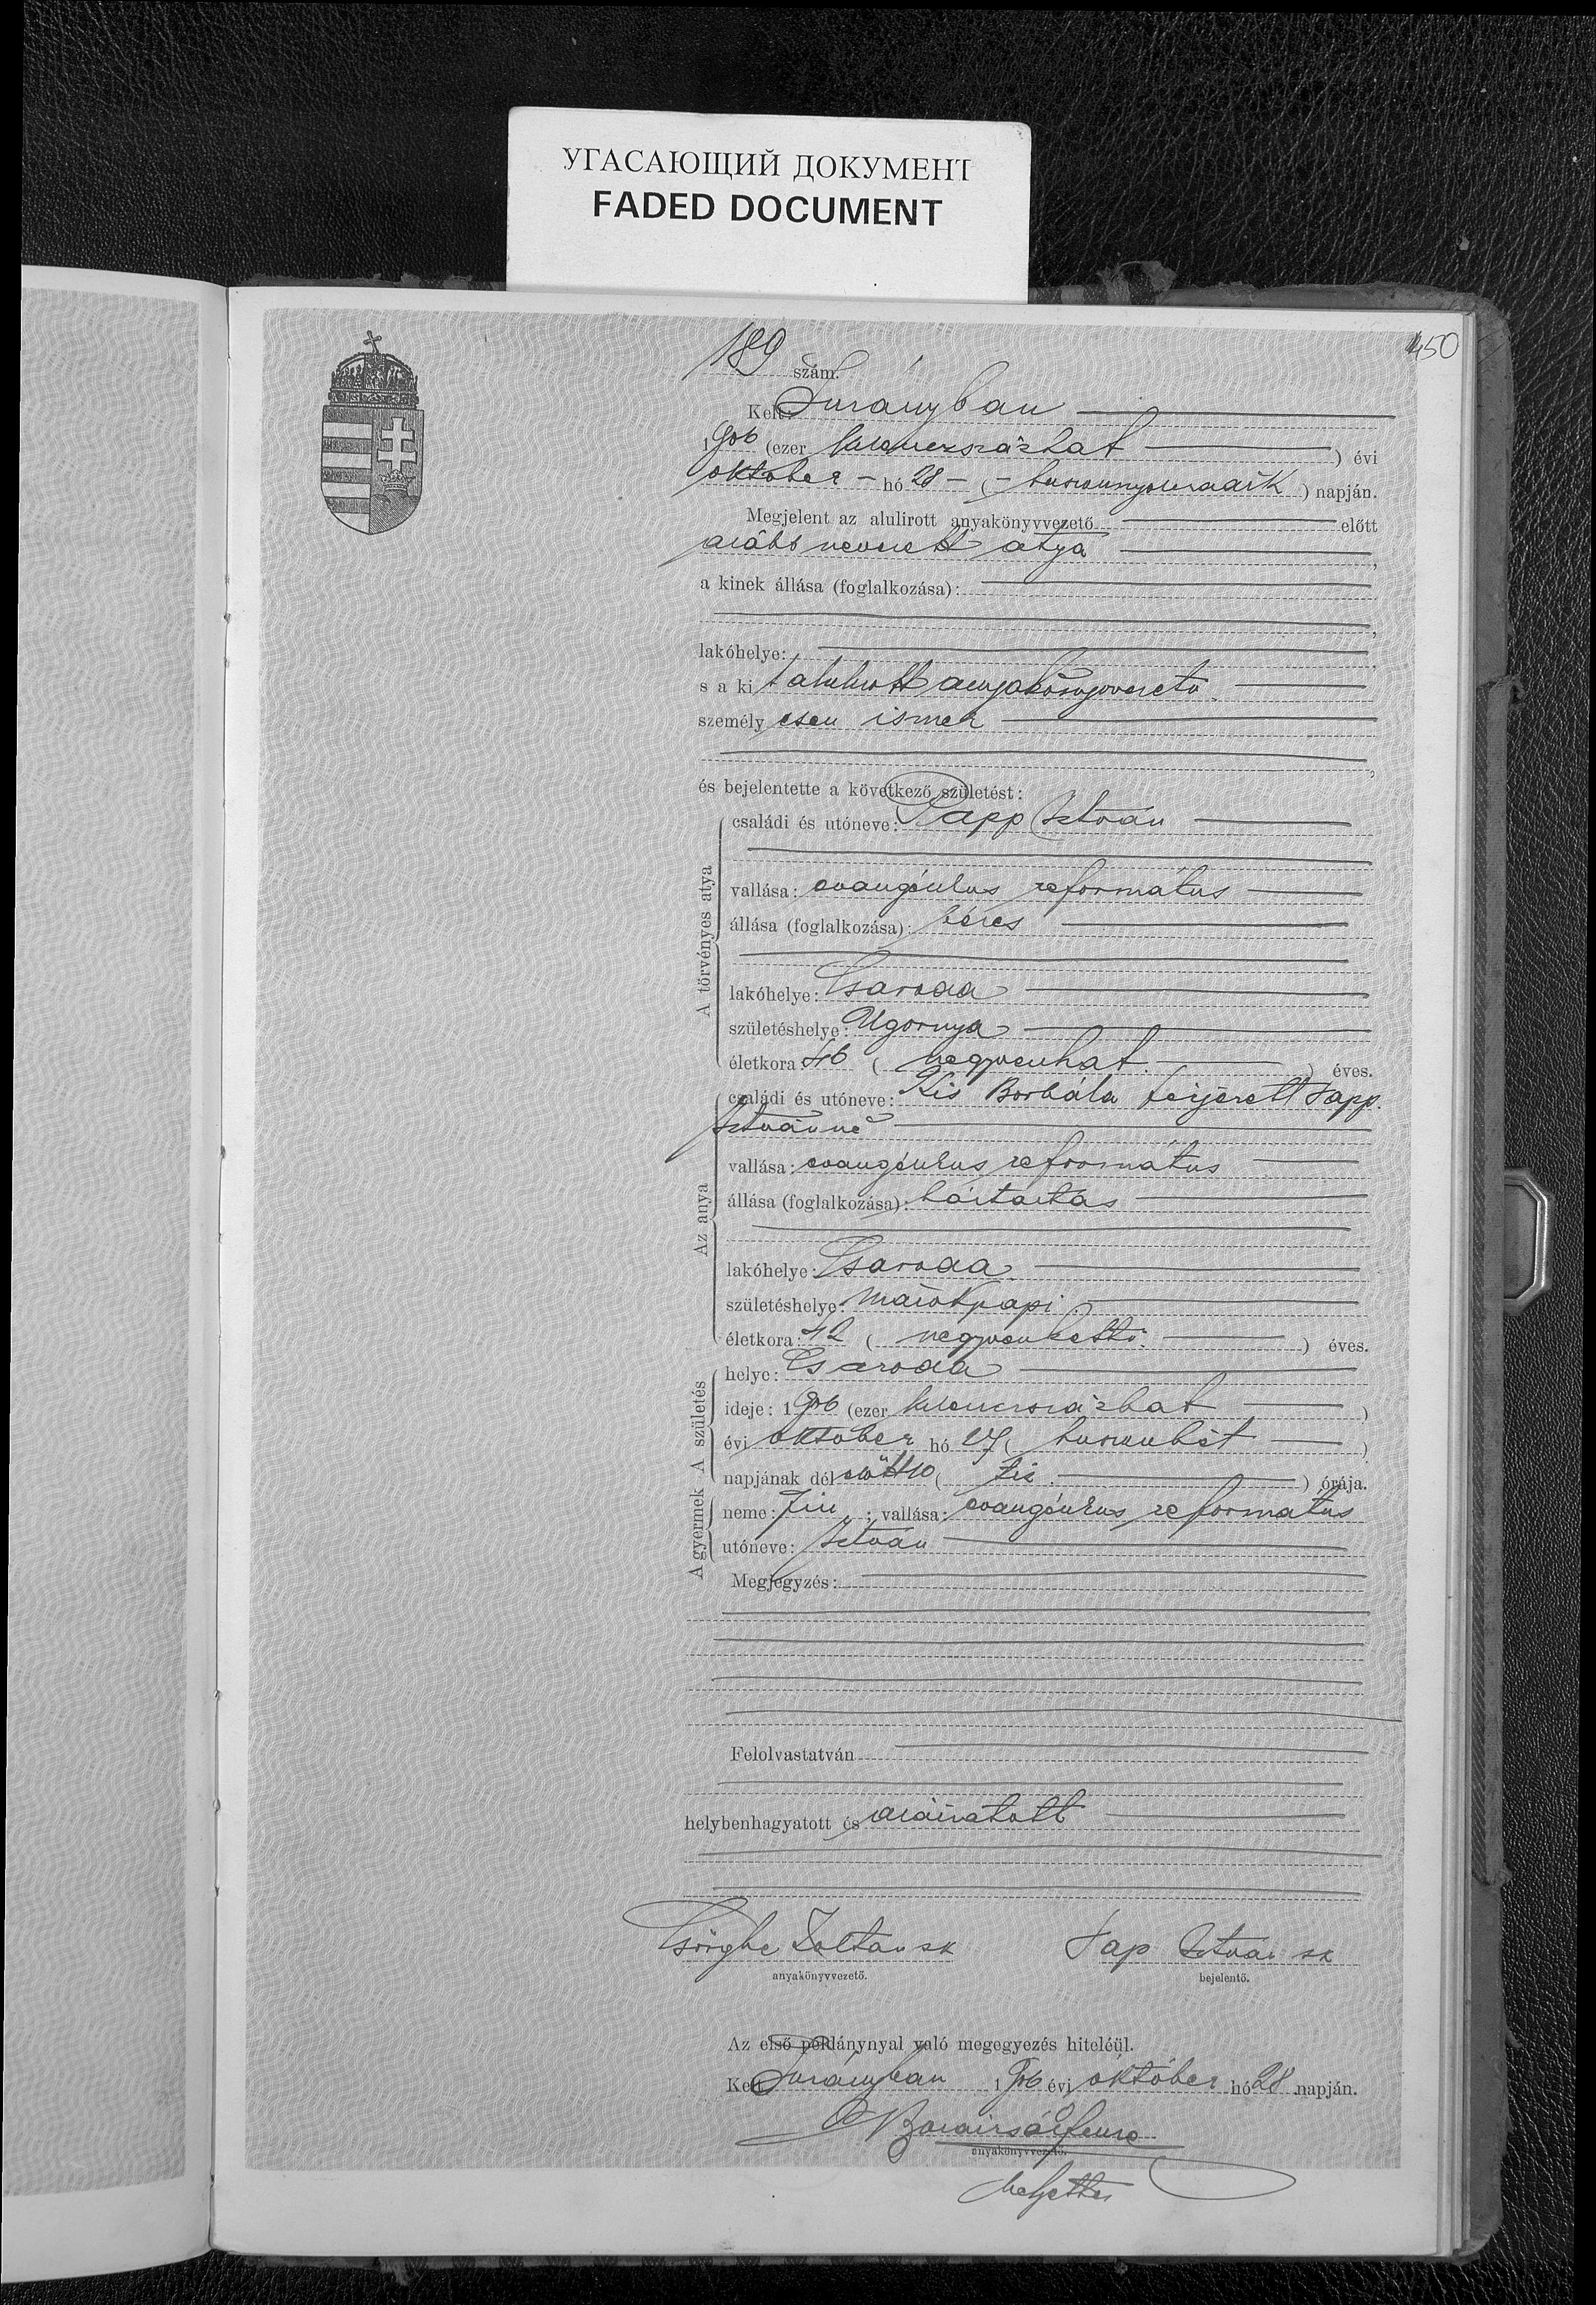 УГАСАЮЩИЙ ДОКУМЕНТ
FADED DOCUMENT
450
189 szám.
Kelt: Surányban
1906 (ezer kilenczszázhat) évi
október hó 28 (huszonnyolczadik) napján.
Megjelent az alulirott anyakönyvvezető előtt
alább nevezett atya,
a kinek állása (foglalkozása):
lakóhelye:
s a kit alulirott anyakönyvvezető
személyesen ismer
és bejelentette a következő születést:
A törvényes atya
családi és utóneve: Papp István
vallása: evangéliukus református
állása (foglalkozása): béres
lakóhelye: Csaroda
születéshelye: Ugornya
életkora: 46 (negyvenhat) éves.
Az anya
családi és utóneve: Kis Borbála férjezett Papp
Istvánné
vallása: evangéliukus református
állása (foglalkozása): háztartás
lakóhelye: Csaroda
születéshelye: Márokpapi
életkora: 42 (negyvenkettő) éves.
A gyermek A születés
helye: Csaroda
ideje: 1906 (ezer kilenczszázhat)
évi október hó 27 (huszonhét)
napjának délelőtt 10 (tiz) órája.
neme: fiu; vallása: evangéliukus református
utóneve: István
Megjegyzés:
Felolvastatván
helybenhagyatott és aláiratott
Zoltán sk Pap István sk
anyakönyvvezető. bejelentő.
Az első példánynyal való megegyezés hiteléül.
Kelt Surányban 1906 évi október hó 28 napján.
anyakönyvvezető.
helyettes